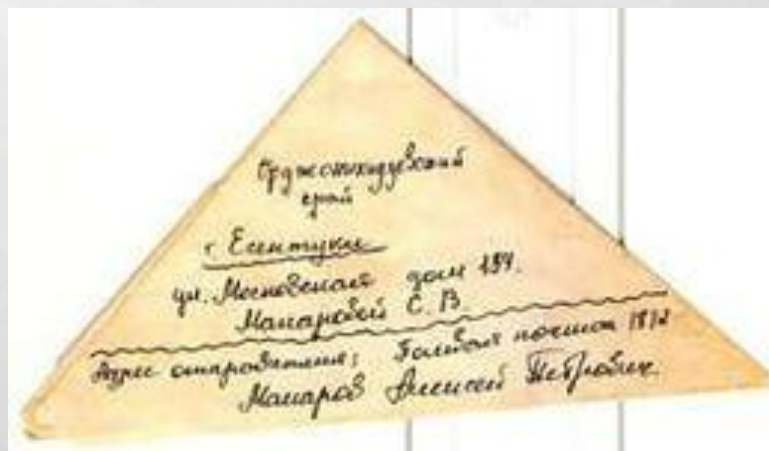 Орджоникидзевский
край
г. Есентуки
ул. Московская дом 184.
Макаровой С. В.
Адрес отправителя: Полевая почта
Макаров Алексей Петрович.